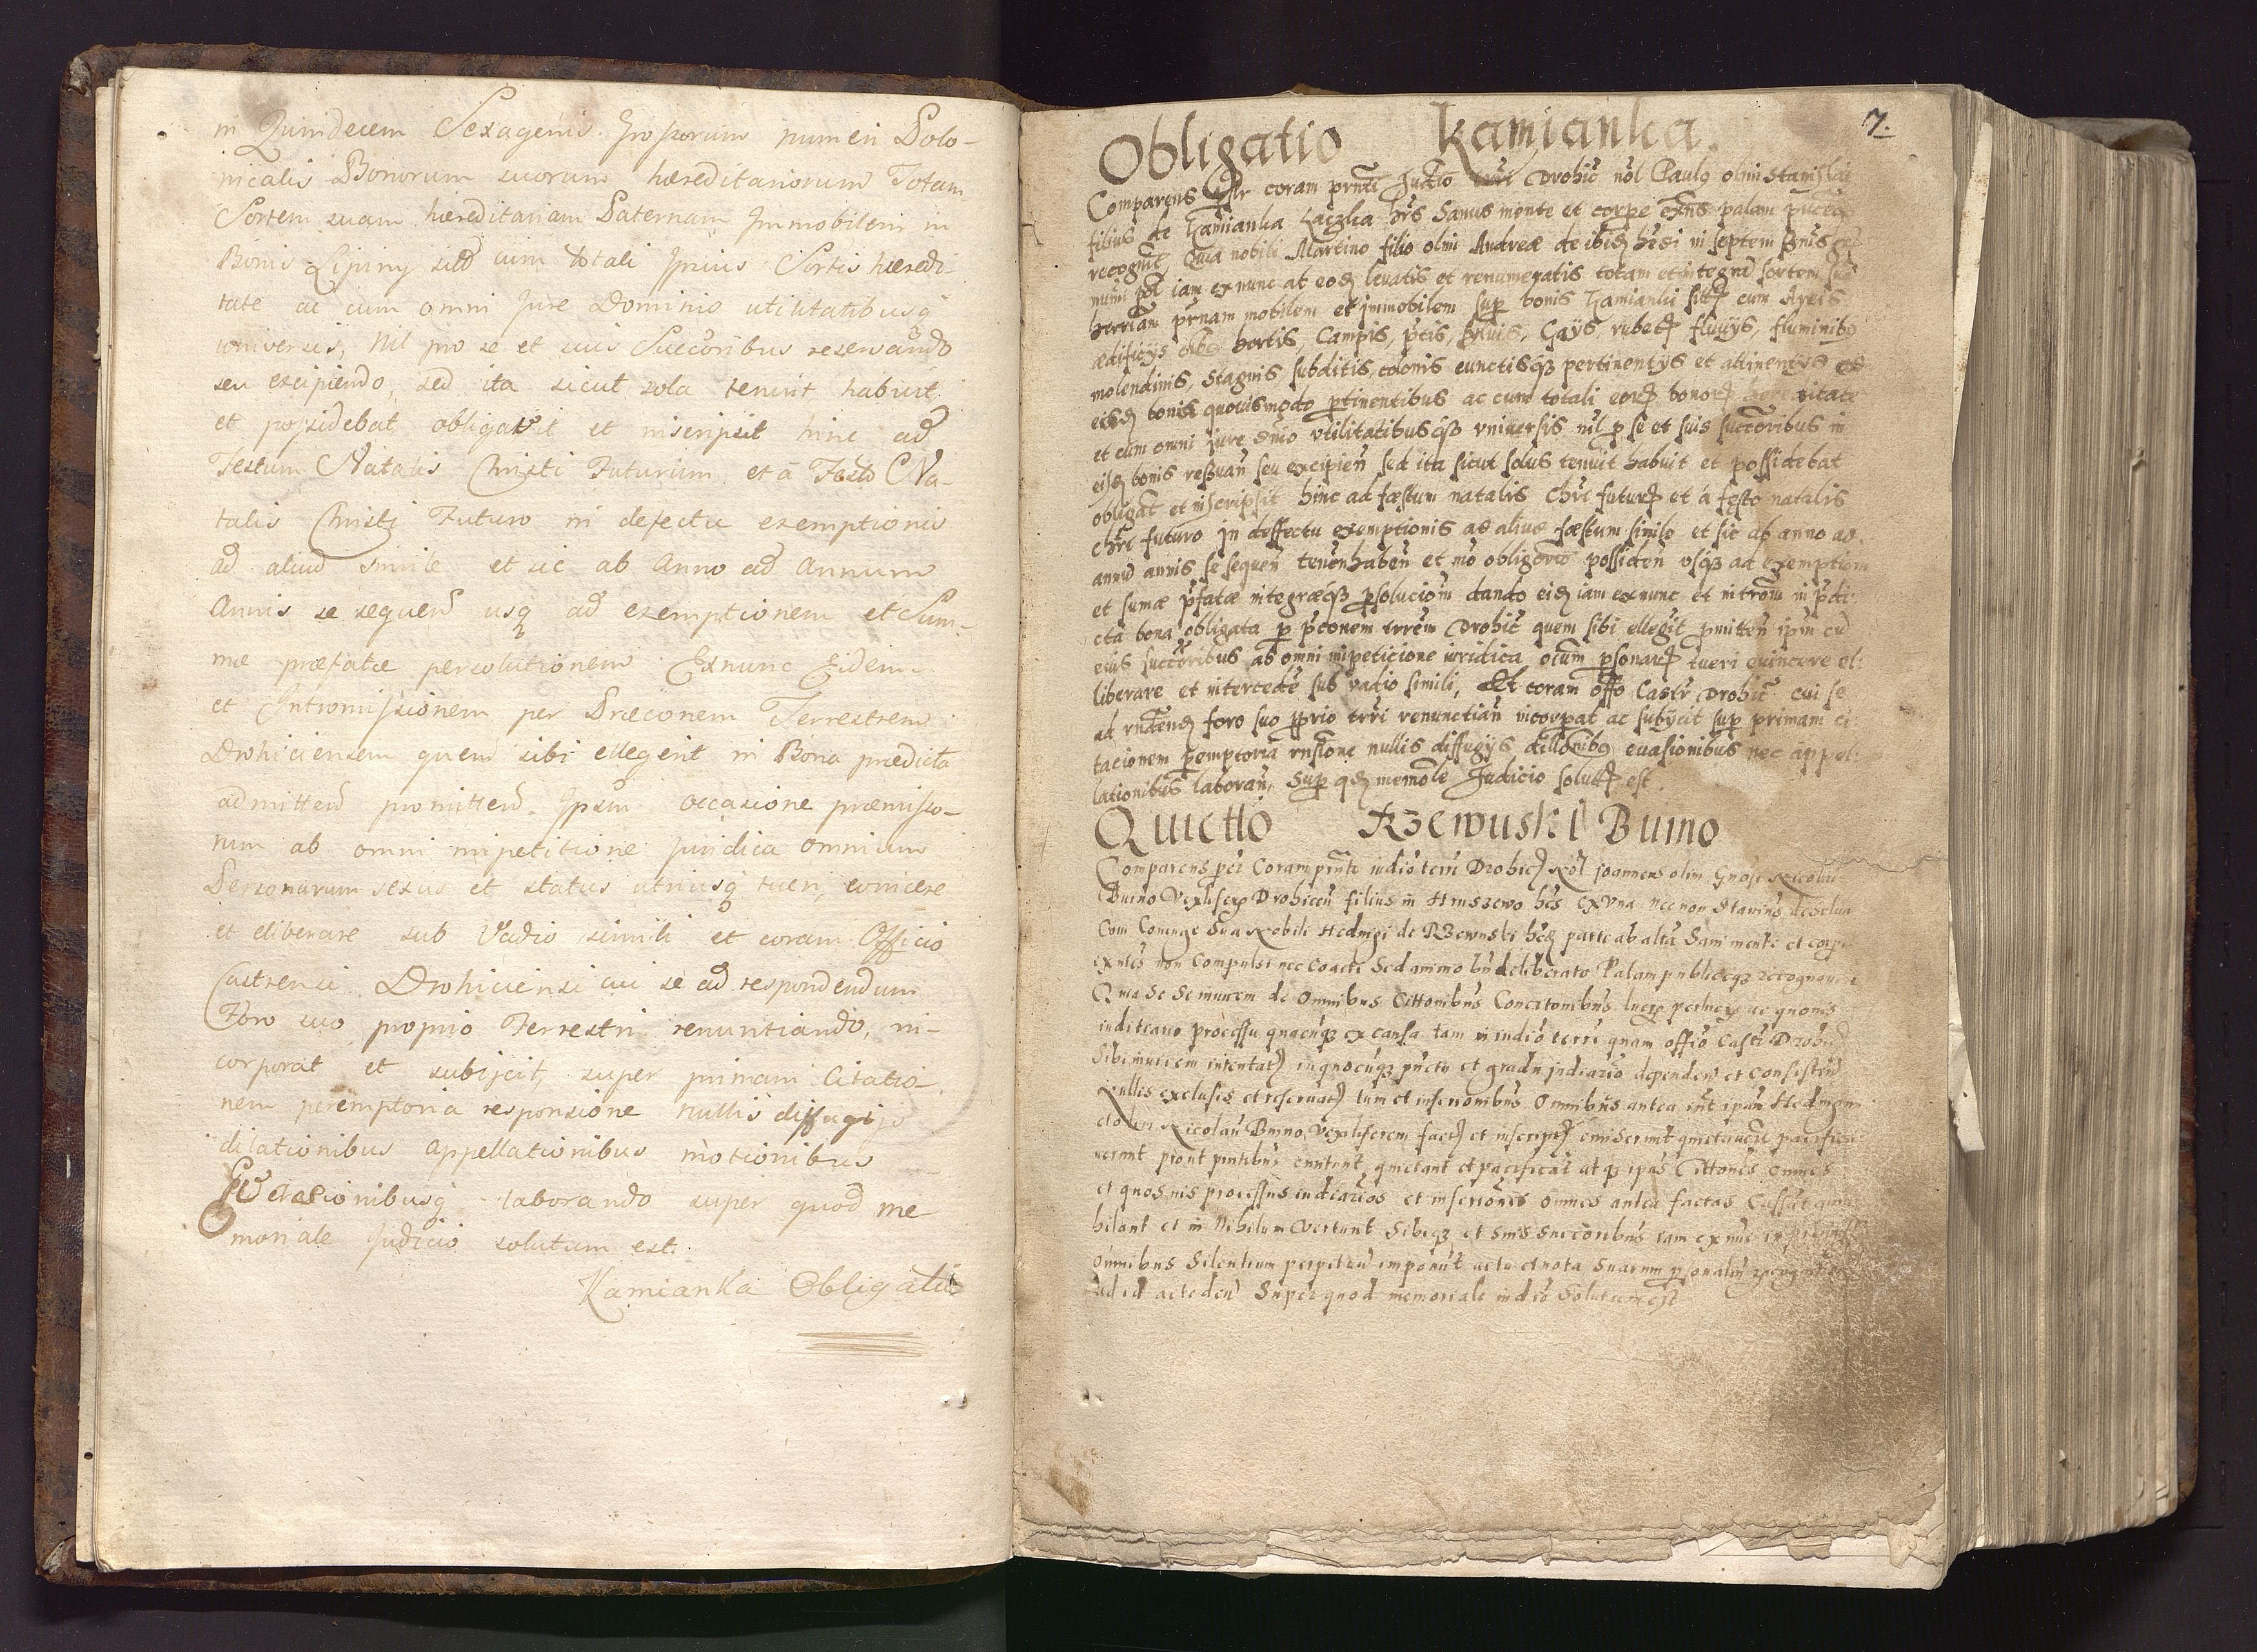 in Quindecem Sexagenis Grossorum numeri Polo-
nicalis Bonorum suorum hæreditariorum Totam
Sortem suam hæreditariam Paternam Immobilem in
Bonis Lipiny sitt cum totali Ipsius Sortis hæredi
tate ac cum omni Jure Dominio utilitatibusq
universis, Nil pro se et suis Succoribus reservando
seu excipiendo, sed ita sicut sola tenuit habuit
et possidebat obligavit et inscripsit hinc ad
Festum Natalis Christi Futurum et a Festo Na-
talis Christi Futuro in defectu exemptionis
ad aliud simile et sic ab Anno ad Annum
Annis se sequend usq ad exemptionem et Sum-
mæ præfatæ persolutionem Exnunc Eidem
et Intromissionem per Præconem Terrestrem
Drohiciensem quem sibi ellegerit in Bona prædicta
admittend promittend Ipsum occasione præmisso-
rum ab omni impetitione Juridica omnium
Personarum sexus et status utriusq tueri, evincere
et eliberare sub Vadio simili et coram Officio
Castrensi Drohiciensi cui se ad respondendum
Foro suo proprio Terrestri renuntiando, in-
corporat et subijcit, super primam Citatio
nem peremptoria responsione nullis diffugijs
dilationibus appellationibus motionibus
Evasionibusq laborando super quod me
moriale Judicio solutum est.
Kamianka Obligatio
7.
Obligatio Kamianka.
Comparens pr coram prnti Judio trri Drohic nol Paulq olim Stanislai
filius de Kamianka hrs Sanus mente et corpe exns palam
recognt Quia nobili Martino filio olim Andreæ de ibid hrdi in septem
numi pol iam exnunc at eod levatis et renumeratis totam et integra sortem sua
herriam prnam mobilem et immobilem sup bonis Kamianki sitt cum Agris
ædificijs hortis, Campis, ptis, silvis, Gays, rubet fluuijs, fluminibq
molendinis, stagnis, subditis, colonis cunctisqz pertinentijs et attinentijs
eisd bonis quovismodo ptinentibus ac cum totali eor bonor ditate
et cum omni jure dnio vtilitatibusqz vniversis nil p se et suis succoribus in
eisd bonis resvan seu excipien sed ita sicut solus tenuit habuit et possidebat
obligat et inscripsit hinc ad fæstum natalis Chri futur et a fæsto natalis
Chri futuro in deffectu exemptionis ad aliud fæstum simile et sic ab anno ad
annu annis se sequen tenen haben et mo obligorio possiden vsqz ad exemptiom
et sumæ pfatæ integræqz psoluciom dando eid iam exnunc et introm in pdi-
cta bona obligata p pconem trrem Drohic quem sibi ellegit pmitten ipm cu
eius succoribus ab omni impeticione iuridica oium psonar tueri evincere el:
liberare et interceden sub vadio simili, Et coram offo Castr Drohic cui se
ad rndend foro suo pprio trri renunctian incorpat ac subijcit sup primam ci:
tacionem pemptoria rnsione nullis diffugijs dillonibq evasionibus nec appel:
lationibus laboran, Sup qd memole Judicio solut est.
Quietio Rzewuski Buino
Comparens per Coram prnti iudio terri Drohic Nol Joannens olim Gnosi Nicolai
Buino Vexliferi Drohicen filius in Hruszewo hrs Ex Vna nec non
Cum Coniuge Sua Nobili Hedvigi de Rzewuski hrd parte ab altra Sani mente et corpe
exntes non Compulsi nec Coacti Sed animo bn deliberato Palam publiceqz recognoverunt
Quia Se Se invicem de Omnibus Cittonibus Concitonibus lucris perlucris ac quovis
inditiario processu quacunqz ex causa tam in iudio terri quam offio Castr Drohic
Sibi invicem intentat in quocunqz puncto et gradu judiciario dependen et consisten
Nullis exclusis et reservat tum et inscrionibus Omnibus antea int ipam Hedvigem
et olim Nicolau Buino Vexliferem fact et inscript emiserint quietaverut pacifica
verunt prout pntibus quietant et pacificat atqz ipas Cittones omnes
et quosvis processus indiciarios et inscriones omnes antea factas Cassat
hilant et in Nihilum Vertunt Sibiqz et Suis Succoribus iam exnunc in
omnibus Silentium perpetuu imponut actu et nota Suarum psonaliu
ad id acceden Super quod memoriale indio Solutum est